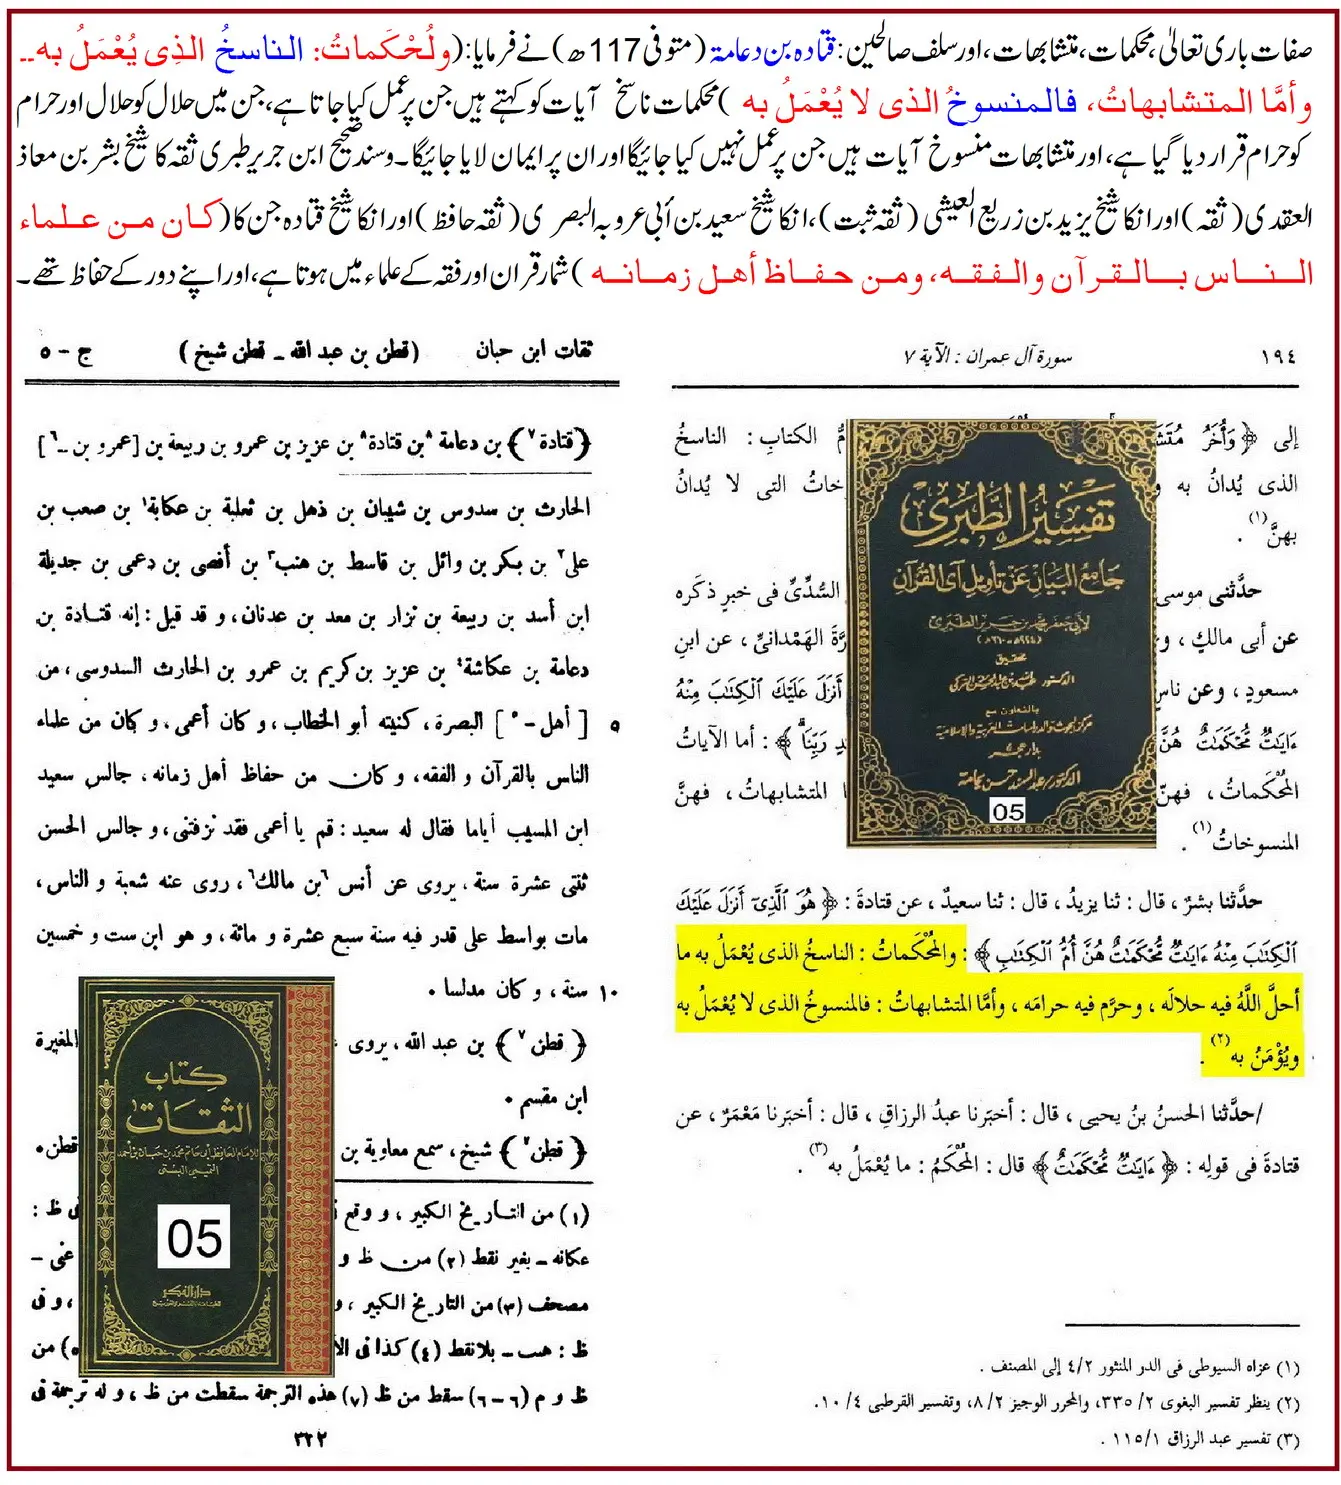 صفات باری تعالیٰ، محکمات، متشابهات، اور سلف صالحین: قتادہ بن دعامۃ (متوفی 117ھ) نے فرمایا: (ولُحْكَماتُ: الناسخُ الذِى يُعْمَلُ به۔۔
وأمَّا المتشابهاتُ، فالمنسوخُ الذى لا يُعْمَلُ به) محکمات ناسخ آیات کو کہتے ہیں جن پر عمل کیا جاتا ہے، جن میں حلال کو حلال اور حرام
کو حرام قرار دیا گیا ہے، اور متشابهات منسوخ آیات ہیں جن پر عمل نہیں کیا جائیگا اور ان پر ایمان لایا جائیگا۔ وسندہ صحیح ابن جریر طبری ثقہ کا شیخ بشر بن معاذ
العقدی (ثقہ) اور انکا شیخ یزید بن زریع العیشی (ثقہ ثبت)، انکا شیخ سعید بن أبی عروبہ البصری (ثقہ حافظ) اور انکا شیخ قتادہ جن کا (كان من علماء
الناس بالقرآن والفقه، ومن حفاظ أهل زمانه) شمار قران اور فقہ کے علماء میں ہوتا ہے، اور اپنے دور کے حفاظ تھے۔
١٩٤ سورة آل عمران : الآية ٧
إلى ﴿وَأُخَرُ الكتابِ : الناسخُ
الذى يُدانُ به التى لا يُدانُ
بهنَّ(١) .
حدَّثنى موسى السُّدِّىِّ فى خبرٍ ذكَره
عن أبى مالكٍ ، الهَمْدانىِّ ، عن ابنِ
مسعودٍ ، وعن أَنزَلَ عَلَيْكَ ٱلْكِتَٰبَ مِنْهُ
ءَايَٰتٌ مُّحْكَمَٰتٌ هُنَّ رَبِّنَا﴾ : أما الآياتُ
المُحْكَماتُ ، فهنّ المتشابهاتُ ، فهنَّ
المنسوخاتُ(١) .
حدَّثنا بشرٌ ، قال : ثنا يزيدُ ، قال : ثنا سعيدٌ ، عن قتادةَ : ﴿هُوَ ٱلَّذِىٓ أَنزَلَ عَلَيْكَ
ٱلْكِتَٰبَ مِنْهُ ءَايَٰتٌ مُّحْكَمَٰتٌ هُنَّ أُمُّ ٱلْكِتَٰبِ﴾ : والمُحْكَماتُ : الناسخُ الذى يُعْمَلُ به ما
أحلَّ اللَّهُ فيه حلالَه ، وحرَّم فيه حرامَه ، وأمَّا المتشابهاتُ : فالمنسوخُ الذى لا يُعْمَلُ به
ويُؤْمَنُ به(٢) .
/حدَّثنا الحسنُ بنُ يحيى ، قال : أخبَرنا عبدُ الرزاقِ ، قال : أخبَرنا مَعْمَرٌ ، عن
قتادةَ فى قولِه : ﴿ءَايَٰتٌ مُّحْكَمَٰتٌ﴾ قال : المُحْكَمُ : ما يُعْمَلُ به(٣) .
(١) عزاه السيوطى فى الدر المنثور ٤/٢ إلى المصنف .
(٢) ينظر تفسير البغوى ٢/ ٣٣٥، والمحرر الوجيز ٢/ ٨، وتفسير القرطبى ٤/ ١٠.
(٣) تفسير عبد الرزاق ١١٥/١ .
تفسير الطبرى
جامع البيان عن تأويل آى القرآن
لأبى جعفر محمد بن جرير الطبرى
تحقيق
الدكتور عبد الله بن عبد المحسن التركى
بالتعاون مع
مركز البحوث والدراسات العربية والإسلامية
بدار هجر
الدكتور/ عبد السند حسن يمامة
05
ثقات ابن حبان (قطن بن عبد الله ـ قطن شيخ) ج - ٥
﴿قتادة٧﴾ بن دعامة ٨بن قتادة٨ بن عزيز بن عمرو بن ربيعة بن [عمرو بن ـ٦]
الحارث بن سدوس بن شيبان بن ذهل بن ثعلبة بن عكابة١ بن صعب بن
على٢ بن بكر بن وائل بن قاسط بن هنب٣ بن أفصى بن دعمى بن جديلة
ابن أسد بن ربيعة بن نزار بن معد بن عدنان ، و قد قيل : إنه قتادة بن
دعامة بن عكاشة٤ بن عزيز بن كريم بن عمرو بن الحارث السدوسى ، من
٥ [أهل - ٥] البصرة ، كنيته أبو الخطاب ، و كان أعمى ، و كان من علماء
الناس بالقرآن و الفقه ، و كان من حفاظ أهل زمانه ، جالس سعيد
ابن المسيب أياما فقال له سعيد : قم يا أعمى فقد نزفتنى ، و جالس الحسن
ثنتى عشرة سنة ، يروى عن أنس ٦بن مالك٦ ، روى عنه شعبة و الناس ،
مات بواسط على قدر فيه سنة سبع عشرة و مائة ، و هو ابن ست و خمسين
١٠ سنة ، و كان مدلسا .
﴿قطن٧﴾ بن عبد الله ، يروى المغيرة
ابن مقسم .
﴿قطن٧﴾ شيخ ، سمع معاوية بن قطن .
(١) من التاريخ الكبير ، و وقع فى ظ :
عكانه ـ بغير نقط (٢) من ظ و عنى ـ
مصحف (٣) من التاريخ الكبير ، و ، و فى
ظ : هب ـ بلا نقط (٤) كذا فى (٥) من
ظ و م (٦-٦) سقط من ظ (٧) هذه الترجمة سقطت من ظ ، و له ترجمة فى
٣٢٢
كتاب
الثقات
للإمام الحافظ أبى حاتم محمد بن حبان بن أحمد
التميمى البستى
05
دار الفكر